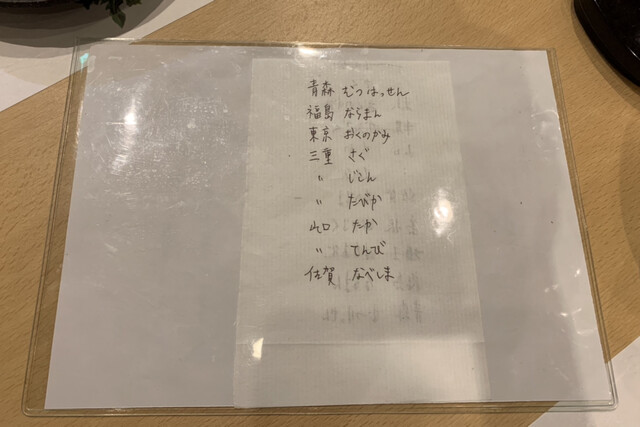 青森 むつはっせん
福島 ならまん
東京 おくのかみ
三重 さぐ
〃 じこん
〃 たびか
山口 たか
〃 てんび
佐賀 なべしま